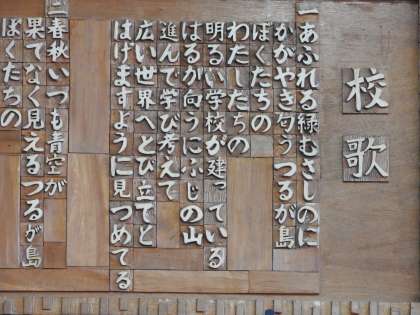 校歌
一 あふれる緑むさしのに
かがやき匂うつるが島
ぼくたちの
わたしたちの
明るい学校が建っている
はるか向うにふじの山
進んで学び考えて
広い世界へとび立てと
はげますように見つめてる
二 春秋いつも青空が
果てなく見えるつるが島
ぼくたちの